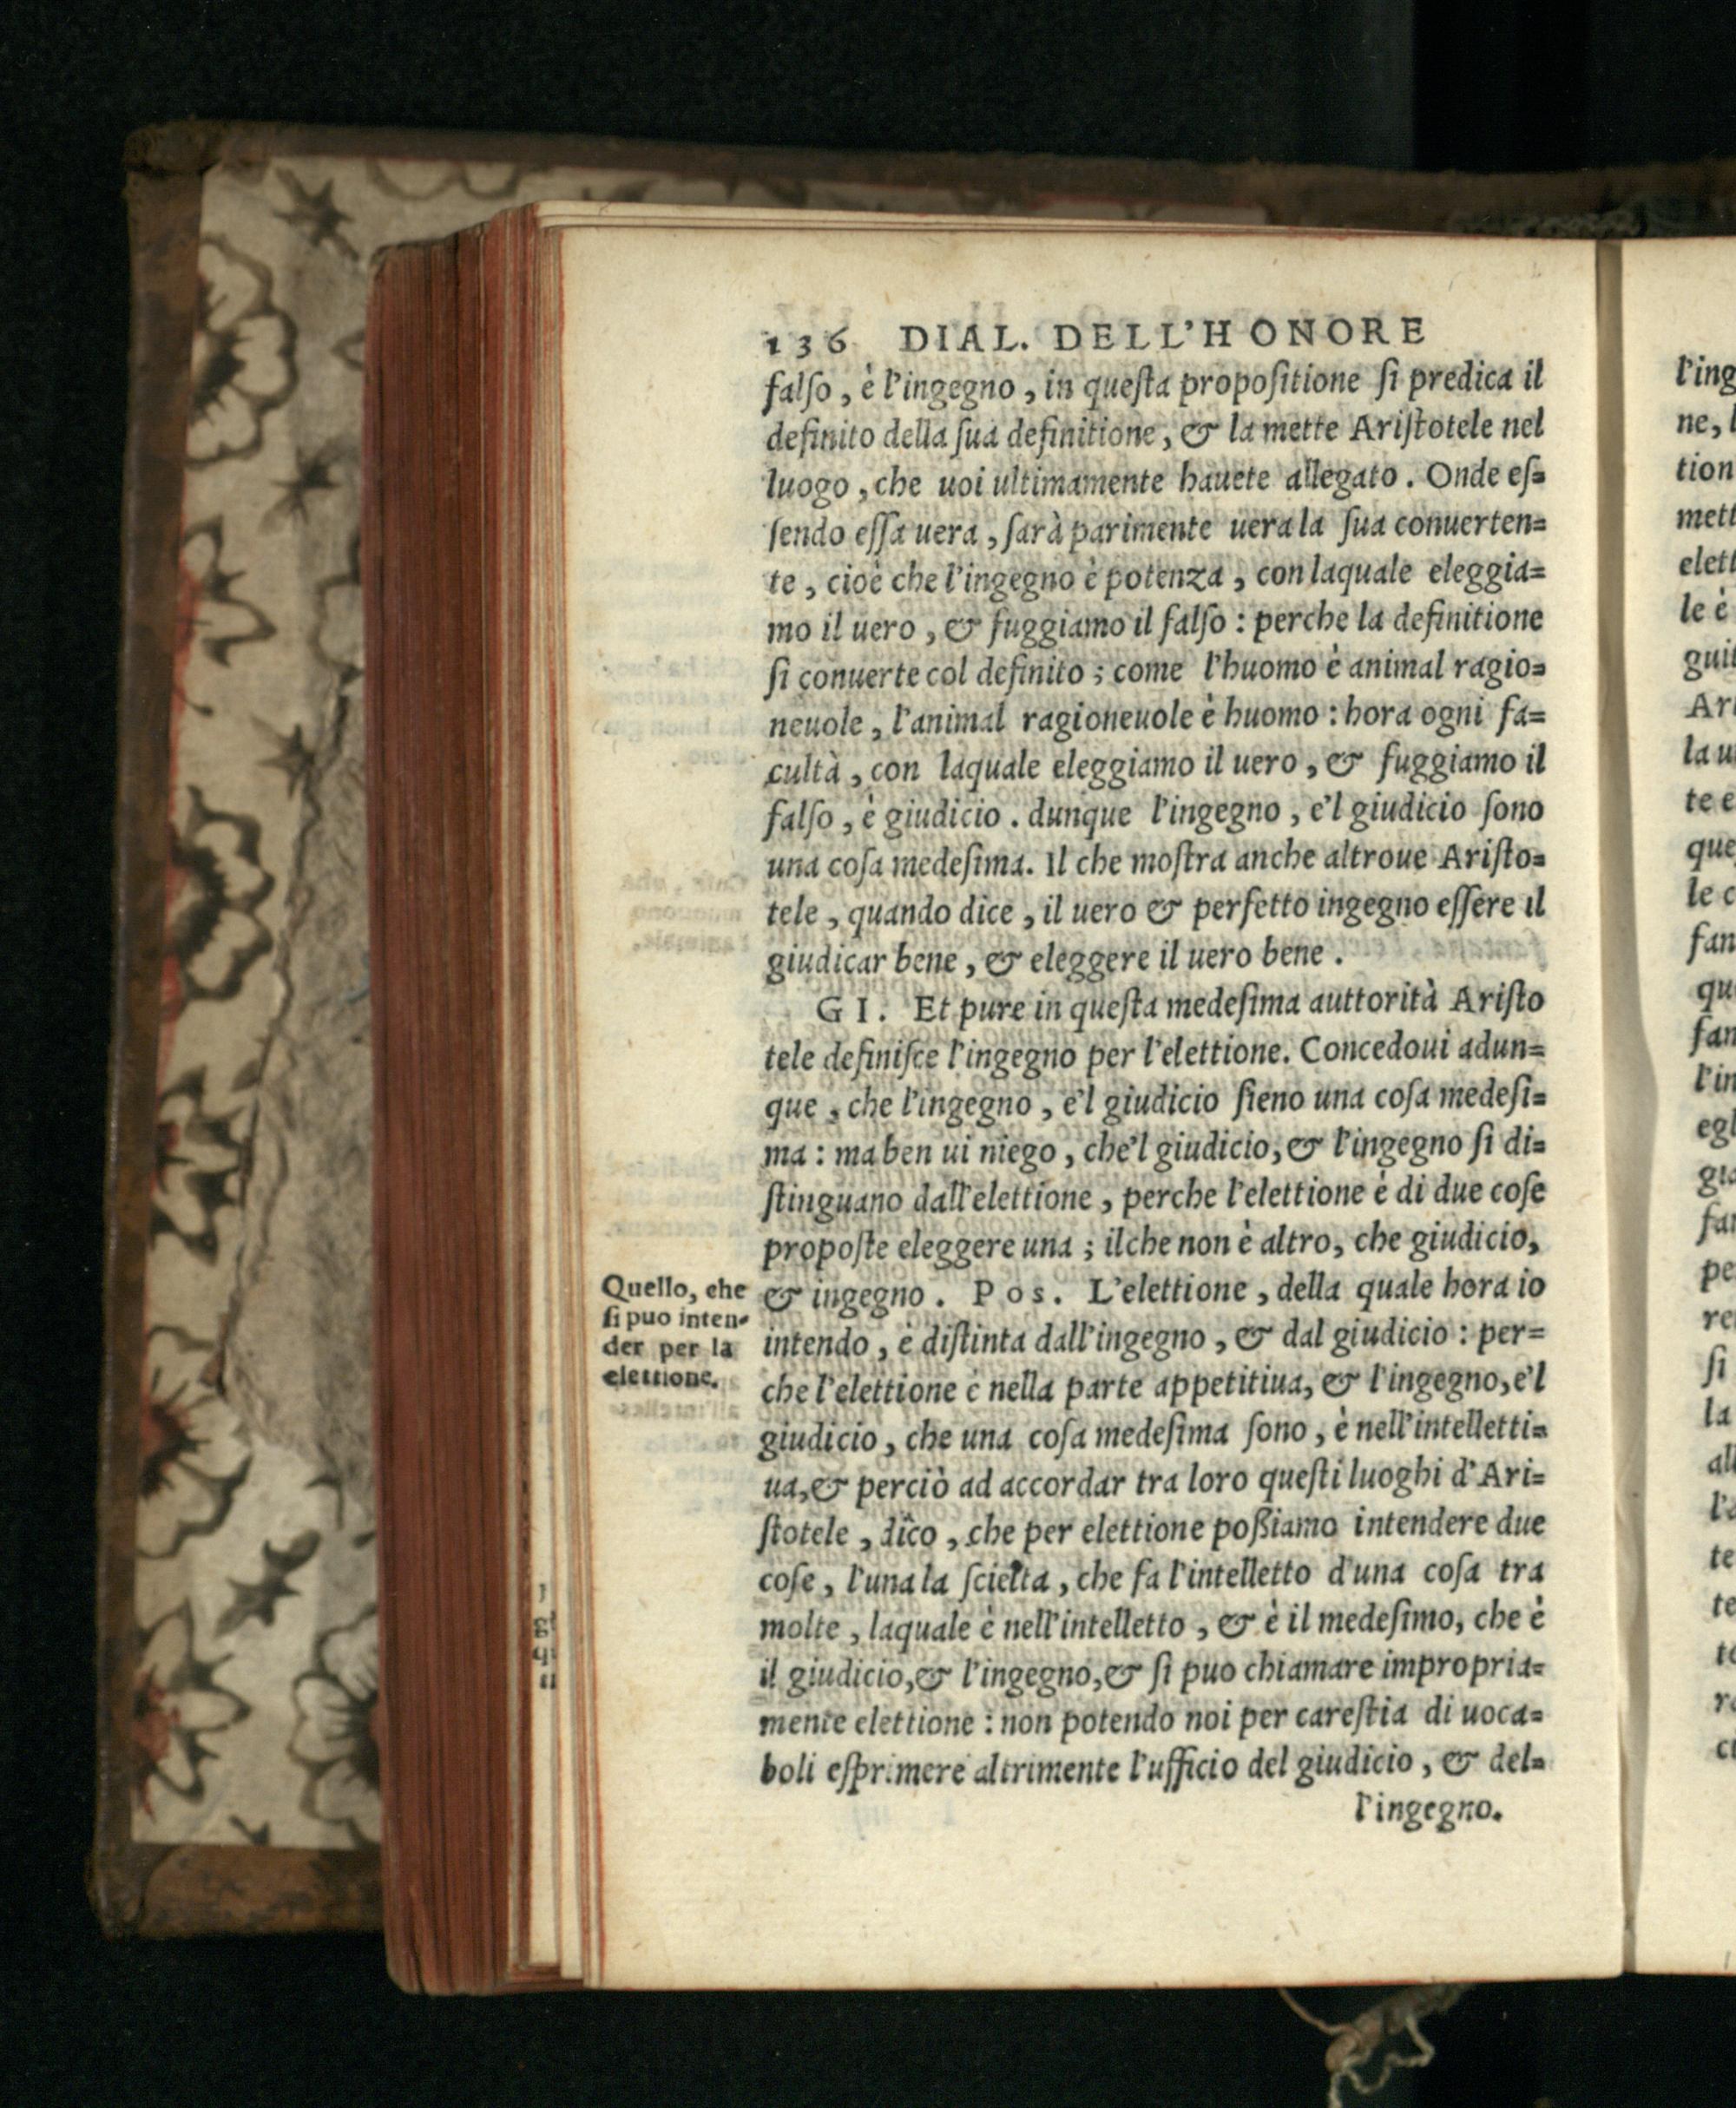 136 DIAL. DELL'HONORE
falſo, è l'ingegno, in queſta propoſitione ſi predica il
definito della ſua definitione, & la mette Ariſtotele nel
luogo, che uoi ultimamente hauete allegato. Onde eſ=
ſendo eſſa uera, ſarà parimente uera la ſua conuerten=
te, cioè che l'ingegno è potenza, con laquale eleggia=
mo il uero, & fuggiamo il falſo: perche la definitione
ſi conuerte col definito; come l'huomo è animal ragio=
neuole, l'animal ragioneuole è huomo: hora ogni fa=
cultà, con laquale eleggiamo il uero, & fuggiamo il
falſo, è giudicio. dunque l'ingegno, e'l giudicio ſono
una coſa medeſima. Il che moſtra anche altroue Ariſto=
tele, quando dice, il uero & perfetto ingegno eſſere il
giudicar bene, & eleggere il uero bene.
GI. Et pure in queſta medeſima auttorità Ariſto
tele definiſce l'ingegno per l'elettione. Concedoui adun=
que, che l'ingegno, e'l giudicio ſieno una coſa medeſi=
ma: ma ben ui niego, che'l giudicio, & l'ingegno ſi di=
ſtinguano dall'elettione, perche l'elettione è di due coſe
propoſte eleggere una; ilche non è altro, che giudicio,
& ingegno. Pos. L'elettione, della quale hora io
intendo, è diſtinta dall'ingegno, & dal giudicio: per=
che l'elettione è nella parte appetitiua, & l'ingegno, e'l
giudicio, che una coſa medeſima ſono, è nell'intelletti=
ua, & perciò ad accordar tra loro queſti luoghi d'Ari=
ſtotele, dico, che per elettione poßiamo intendere due
coſe, l'una la ſcielta, che fa l'intelletto d'una coſa tra
molte, laquale è nell'intelletto, & è il medeſimo, che è
il giudicio, & l'ingegno, & ſi puo chiamare impropria=
mente elettione: non potendo noi per careſtia di uoca=
boli eſprimere altrimente l'ufficio del giudicio, & del=
l'ingegno.
Quello, che
ſi puo inten-
der per la
elettione.
l'ing
ne, l
tion
mett
elett
le è
guit
Ari
la u
te e
que
le c
fan
qu
fan
l'in
egl
gia
fan
pe
re
ſi
la
all
l'a
te
te